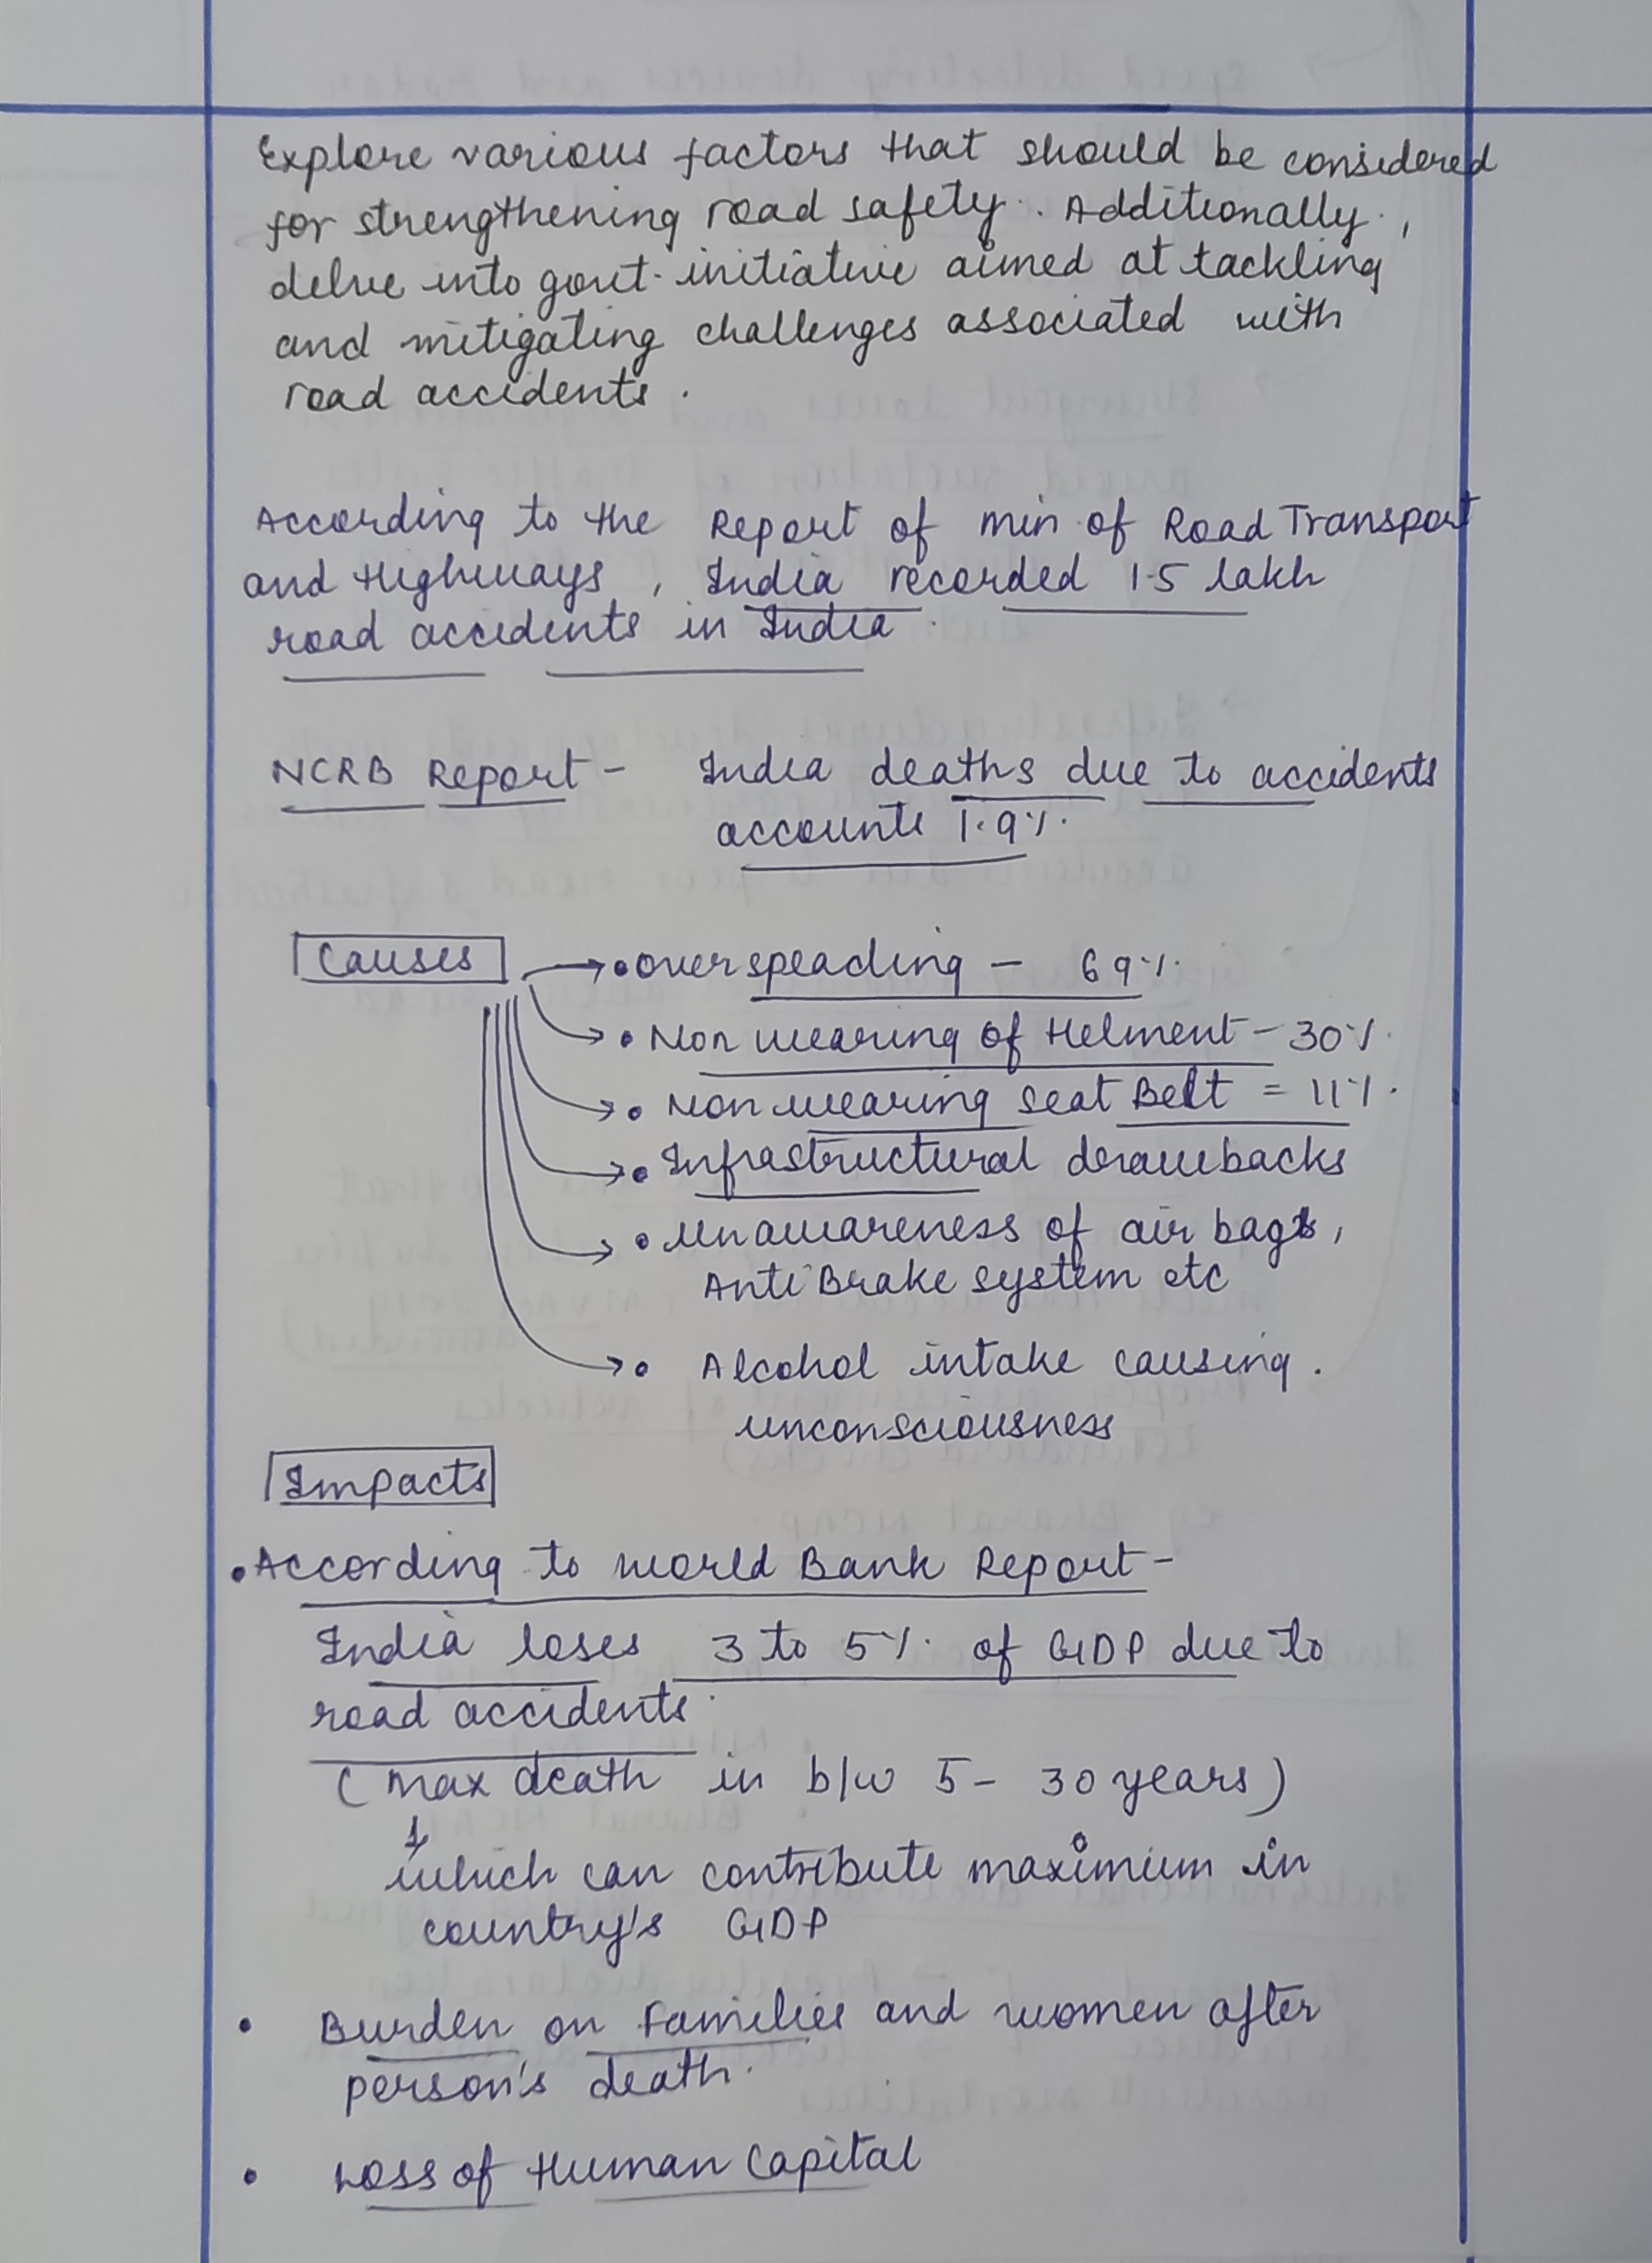 Explore various factors that should be considered
for strengthening road safety. Additionally,
delve into govt. initiative aimed at tackling
and mitigating challenges associated with
road accidents.
According to the Report of min. of Road Transport
and Highways, India recorded 1.5 lakh
road accidents in India.
NCRB Report - India deaths due to accidents
accounts 1.9%.
Causes
• overspeading - 69%.
• Non wearing of Helment - 30%.
• Non wearing seat Belt = 11%.
• Infrastructural drawbacks
• Unawareness of air bags,
Anti Brake system etc
• Alcohol intake causing.
unconsciousness
Impacts
• According to World Bank Report -
India loses 3 to 5% of GDP due to
road accidents.
(max death in b/w 5 - 30 years)
↓
which can contribute maximium in
country's GDP
• Burden on Families and women after
person's death.
• Loss of Human Capital